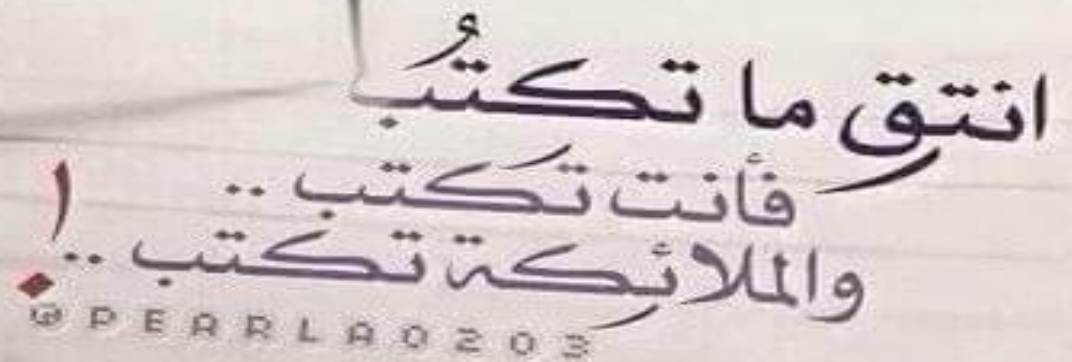 انتق ما تكتبُ
فأنت تكتب ..
والملائكة تكتب ..!
@PEARLA0203